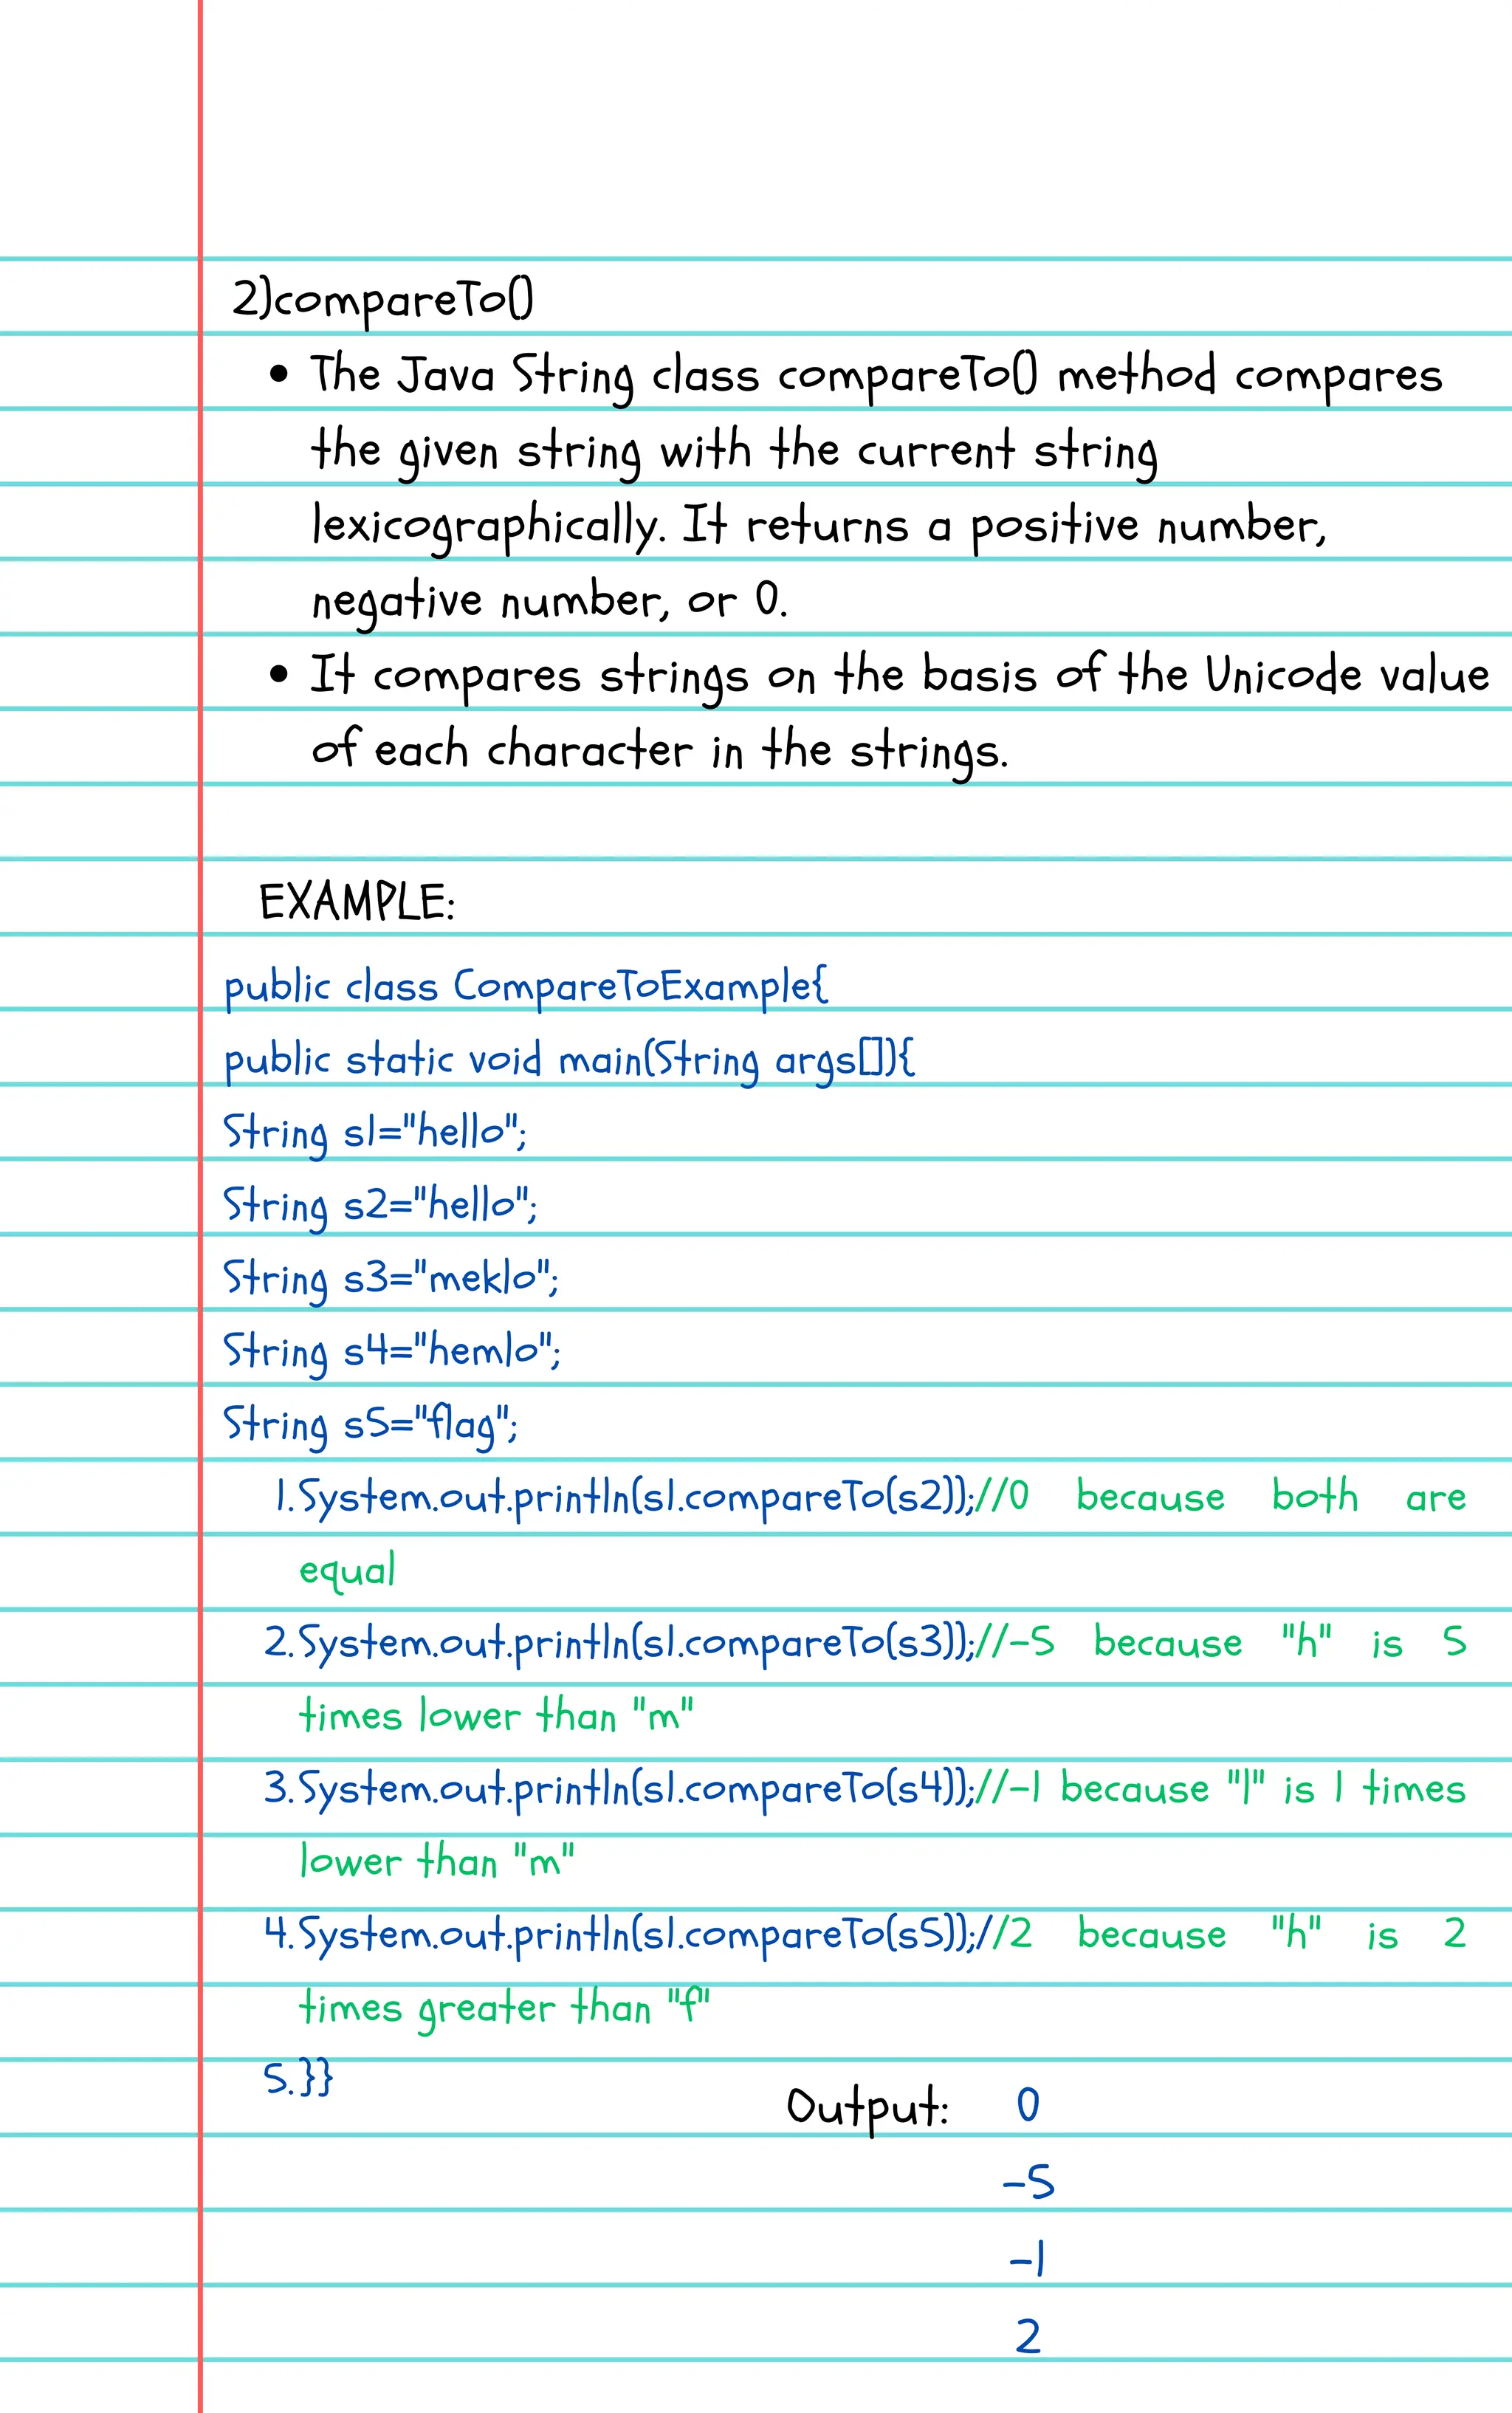 2)compareTo()
• The Java String class compareTo() method compares
the given string with the current string
lexicographically. It returns a positive number,
negative number, or 0.
• It compares strings on the basis of the Unicode value
of each character in the strings.
EXAMPLE:
public class CompareToExample{
public static void main(String args[]){
String s1="hello";
String s2="hello";
String s3="meklo";
String s4="hemlo";
String s5="flag";
1.System.out.println(s1.compareTo(s2));//0 because both are
equal
2.System.out.println(s1.compareTo(s3));//-5 because "h" is 5
times lower than "m"
3.System.out.println(s1.compareTo(s4));//-1 because "l" is 1 times
lower than "m"
4.System.out.println(s1.compareTo(s5));//2 because "h" is 2
times greater than "f"
5.}}
Output: 0
-5
-1
2